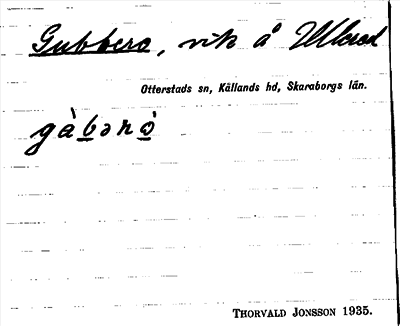 Gubbero, vik å Ullersd
Otterstads sn, Kållands hd, Skaraborgs län.
gàbənò
THORVALD JONSSON 1935.